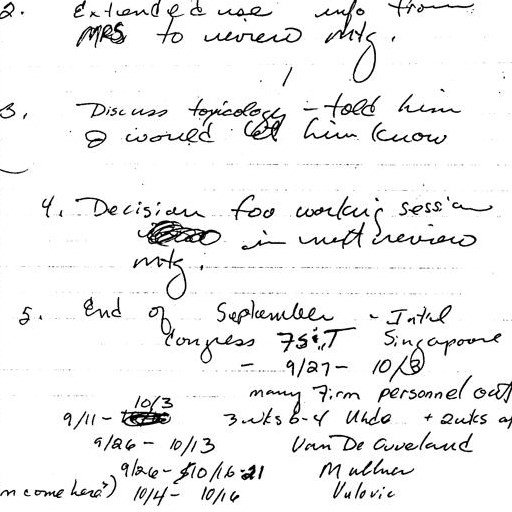 2. Extended use info from
MRS to review mtg.
3. Discuss toxicology - told him
I would let him know
4. Decision for working session
in next review
mtg.
5. End of September - Intl
Congress Singapore
- 9/27 - 10/3
many Firm personnel out
9/11 - 10/3 3 wks + 2 wks
9/26 - 10/13
9/26 - 10/16 21
come here?) 10/4 - 10/16 Vulovic